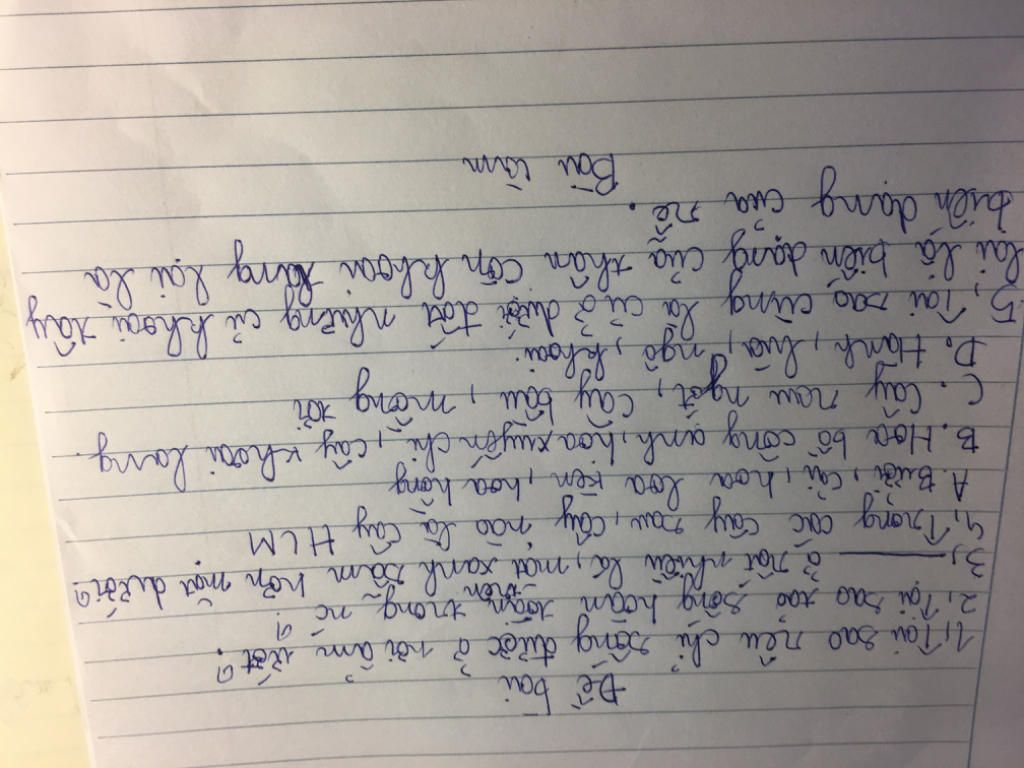 Đề bài
1, Tại sao rêu chỉ sống được ở nơi ẩm ướt?
2, Tại sao tảo sống hoàn toàn trong nc?
3, ——— ở rất nhiều lá, mặt trên xanh sẫm hơn mặt dưới?
4, Trong các cây sau, cây nào là cây HLM
A. Bưởi, cải, hoa loa kèn, hoa hồng
B. Hoa bồ công anh, hoa xuyến chi, cây khoai lang.
C. Cây rau ngót, cây bầu, mồng tơi
D. Hành, lúa, ngô, khoai.
5, Tại sao cùng là củ ở dưới đất nhưng củ khoai tây
lại là biến dạng của thân còn khoai lang lại là
biến dạng của rễ.
Bài làm